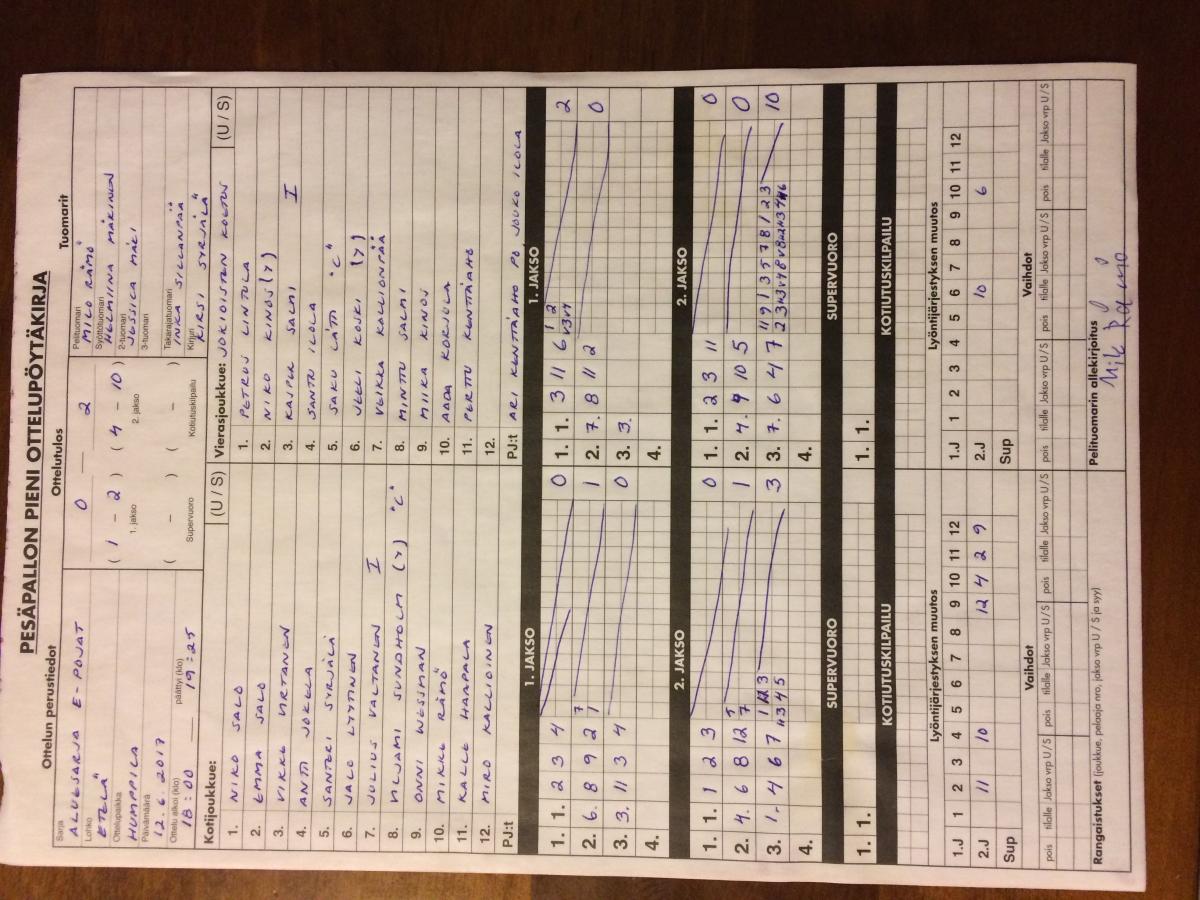 PESÄPALLON PIENI OTTELUPÖYTÄKIRJA
Ottelun perustiedot
Sarja
ALUESARJA E-POJAT
Lohko
ETELÄ
Ottelupaikka
HUMPPILA
Päivämäärä
12.6.2017
Ottelu alkoi (klo) päättyi (klo)
18:00 19:25
Ottelutulos
0 — 2
( 1 – 2 ) ( 4 – 10 )
1. jakso 2. jakso
( – ) ( – )
Supervuoro Kotiutuskilpailu
Tuomarit
Pelituomari
MILO RÄMÖ
Syöttötuomari
HELMIINA MÄKINEN
2-tuomari
JESSICA MÄKI
3-tuomari
Takarajatuomari
INKA SILLANPÄÄ
Kirjuri
KIRSI SYRJÄLÄ
Kotijoukkue: (U / S)
1. NIKO SALO
2. EMMA SALO
3. VIKKE VIRTANEN
4. ANTI JOKELA
5. SANTERI SYRJÄLÄ
6. JALO LYYTINEN
7. JULIUS VALTANEN I
8. VILJAMI SUNDHOLM (Y) "C"
9. ONNI WESSMAN
10. MIKKE RÄMÖ
11. KALLE HAAPALA
12. MIRO KALLIOINEN
PJ:t
Vierasjoukkue: JOKIOISTEN KOETUS (U / S)
1. PETRUS LINTULA
2. NIKO KINOS (Y)
3. KASPER SALMI I
4. SANTU ILOLA
5. SAKU LÄTTI "C"
6. EELI KOSKI (Y)
7. VEIKKA KALLIONPÄÄ
8. MINTTU SALMI
9. MIIKA KINOS
10. AADA KORJULA
11. PERTTU KENTTÄAHO
12.
PJ:t ARI KENTTÄAHO PJ JOUKO ILOLA
1. JAKSO 1. JAKSO
1. 1. 2 3 4 0
2. 6. 8 9 2 1 7 1
3. 3. 11 3 4 0
4.
1. 1. 3 11 6 2
2. 7. 8 11 2 0
3. 3.
4.
2. JAKSO 2. JAKSO
1. 1. 1 2 3 0
2. 4. 6 8 12 7 1
3. 1. 4 6 7 3
4.
1. 1. 2 3 11 0
2. 4. 9 10 5 0
3. 7. 6 4 7 10
4.
SUPERVUORO SUPERVUORO
1. 1. 1. 1.
KOTIUTUSKILPAILU KOTIUTUSKILPAILU
Lyöntijärjestyksen muutos Lyöntijärjestyksen muutos
1.J 1 2 3 4 5 6 7 8 9 10 11 12
2.J 11 10 12 4 2 9
Sup
1.J 1 2 3 4 5 6 7 8 9 10 11 12
2.J 10 6
Sup
Vaihdot Vaihdot
pois tilalle Jakso vrp U / S pois tilalle Jakso vrp U / S pois tilalle Jakso vrp U / S
pois tilalle Jakso vrp U / S pois tilalle Jakso vrp U / S pois tilalle Jakso vrp U / S
Rangaistukset (joukkue, pelaaja nro, jakso vrp U / S ja syy)
Pelituomarin allekirjoitus